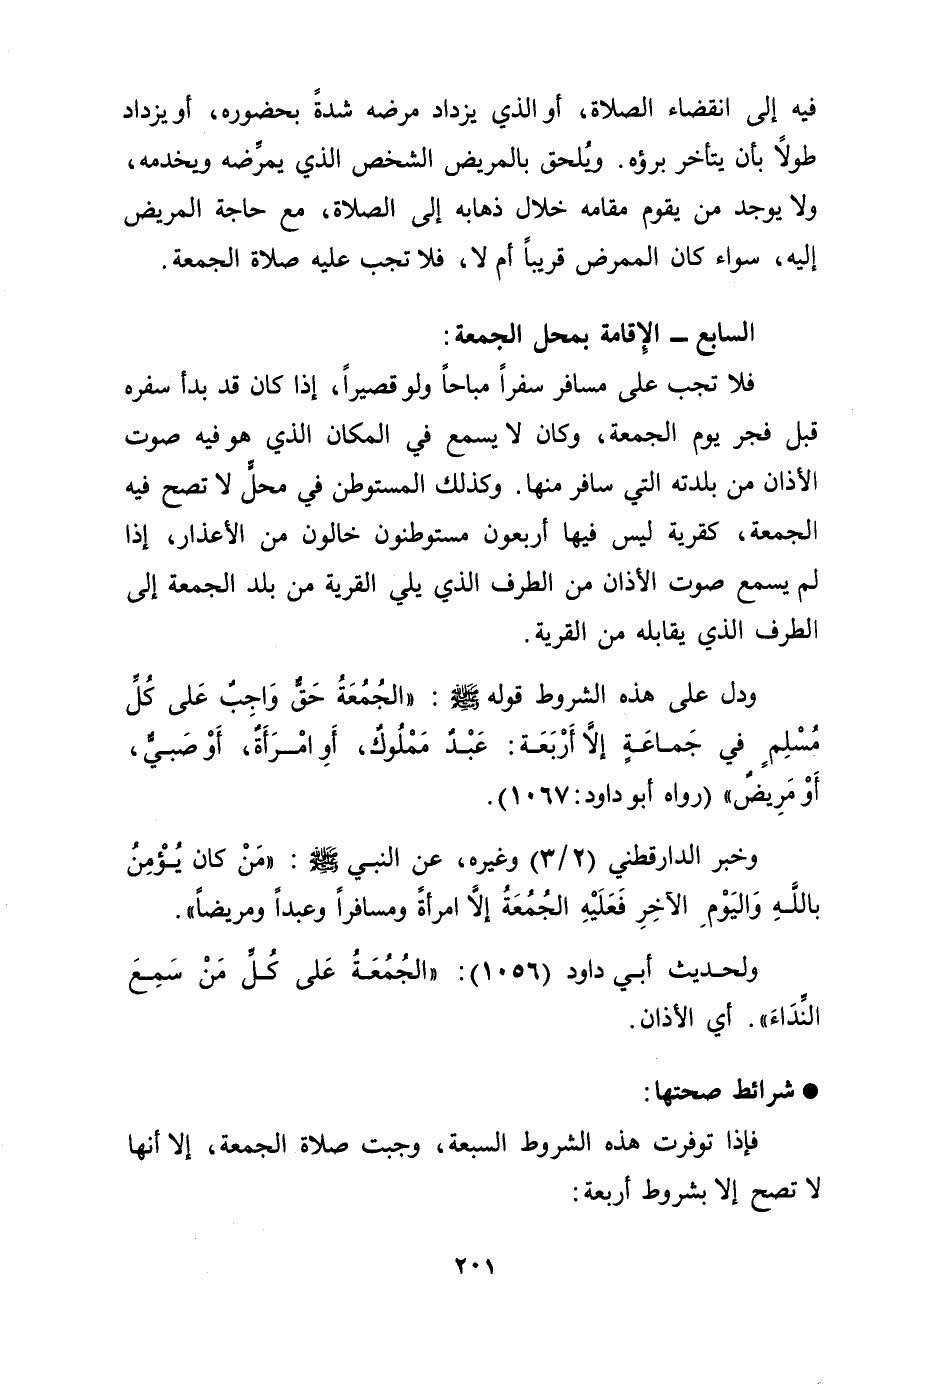 فيه إلى انقضاء الصلاة، أو الذي يزداد مرضه شدةً بحضوره، أو يزداد
طولاً بأن يتأخر برؤه. ويُلحق بالمريض الشخص الذي يمرِّضه ويخدمه،
ولا يوجد من يقوم مقامه خلال ذهابه إلى الصلاة، مع حاجة المريض
إليه، سواء كان الممرض قريباً أم لا، فلا تجب عليه صلاة الجمعة.
السابع ــ الإقامة بمحل الجمعة:
فلا تجب على مسافر سفراً مباحاً ولو قصيراً، إذا كان قد بدأ سفره
قبل فجر يوم الجمعة، وكان لا يسمع في المكان الذي هو فيه صوت
الأذان من بلدته التي سافر منها. وكذلك المستوطن في محلٍّ لا تصح فيه
الجمعة، كقرية ليس فيها أربعون مستوطنون خالون من الأعذار، إذا
لم يسمع صوت الأذان من الطرف الذي يلي القرية من بلد الجمعة إلى
الطرف الذي يقابله من القرية.
ودل على هذه الشروط قوله ﷺ : «الجُمُعَةُ حَقٌّ وَاجِبٌ عَلى كُلِّ
مُسْلِمٍ في جَماعَةٍ إلاَّ أَرْبَعَة: عَبْدٌ مَمْلُوكٌ، أَوِ امْرَأَةٌ، أَوْ صَبيٌّ،
أَوْ مَرِيضٌ» (رواه أبو داود:١٠٦٧).
وخبر الدارقطني (٣/٢) وغيره، عن النبي ﷺ : «مَنْ كان يُؤْمِنُ
باللَّهِ وَاليَوْمِ الآخِرِ فَعَلَيْهِ الجُمُعَةُ إلاَّ امرأةً ومسافراً وعبداً ومريضاً».
ولحديث أبي داود (١٠٥٦): «الجُمُعَةُ عَلى كُلِّ مَنْ سَمِعَ
النِّدَاءَ». أي الأذان.
● شرائط صحتها:
فإذا توفرت هذه الشروط السبعة، وجبت صلاة الجمعة، إلا أنها
لا تصح إلا بشروط أربعة:
٢٠١